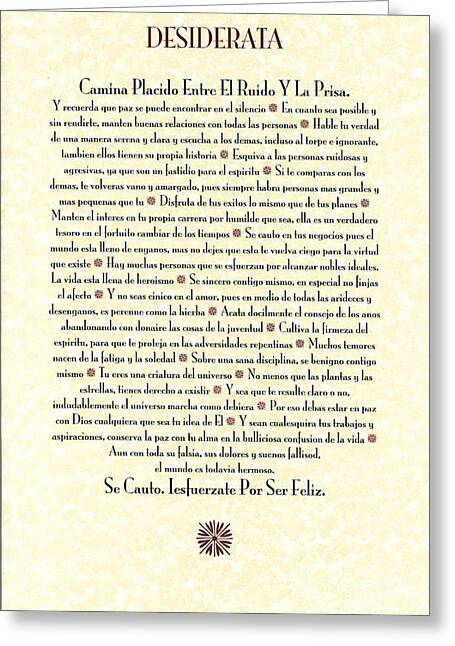 DESIDERATA
Camina Placido Entre El Ruido Y La Prisa.
Y recuerda que paz se puede encontrar en el silencio ❋ En cuanto sea posible y
sin rendirte, manten buenas relaciones con todas las personas ❋ Hable tu verdad
de una manera serena y clara y escucha a los demas, incluso al torpe e ignorante,
tambien ellos tienen su propia historia ❋ Esquiva a las personas ruidosas y
agresivas, ya que son un fastidio para el espiritu ❋ Si te comparas con los
demas, te volveras vano y amargado, pues siempre habra personas mas grandes y
mas pequenas que tu ❋ Disfruta de tus exitos lo mismo que de tus planes ❋
Manten el interes en tu propia carrera por humilde que sea, ella es un verdadero
tesoro en el fortuito cambiar de los tiempos ❋ Se cauto en tus negocios pues el
mundo esta lleno de enganos, mas no dejes que esto te vuelva ciego para la virtud
que existe ❋ Hay muchas personas que se esfuerzan por alcanzar nobles ideales.
La vida esta llena de heroismo ❋ Se sincero contigo mismo, en especial no finjas
el afecto ❋ Y no seas cinico en el amor, pues en medio de todas las arideces y
desenganos, es perenne como la hierba ❋ Acata docilmente el consejo de los anos
abandonando con donaire las cosas de la juventud ❋ Cultiva la firmeza del
espiritu, para que te proteja en las adversidades repentinas ❋ Muchos temores
nacen de la fatiga y la soledad ❋ Sobre una sana disciplina, se benigno contigo
mismo ❋ Tu eres una criatura del universo ❋ No menos que las plantas y las
estrellas, tienes derecho a existir ❋ Y sea que te resulte claro o no,
indudablemente el universo marcha como debiera ❋ Por eso debas estar en paz
con Dios cualquiera que sea tu idea de El ❋ Y sean cualesquira tus trabajos y
aspiraciones, conserva la paz con tu alma en la bulliciosa confusion de la vida ❋
Aun con toda su falsia, sus dolores y suenos fallisod,
el mundo es todavia hermoso.
Se Cauto. Iesfuerzate Por Ser Feliz.